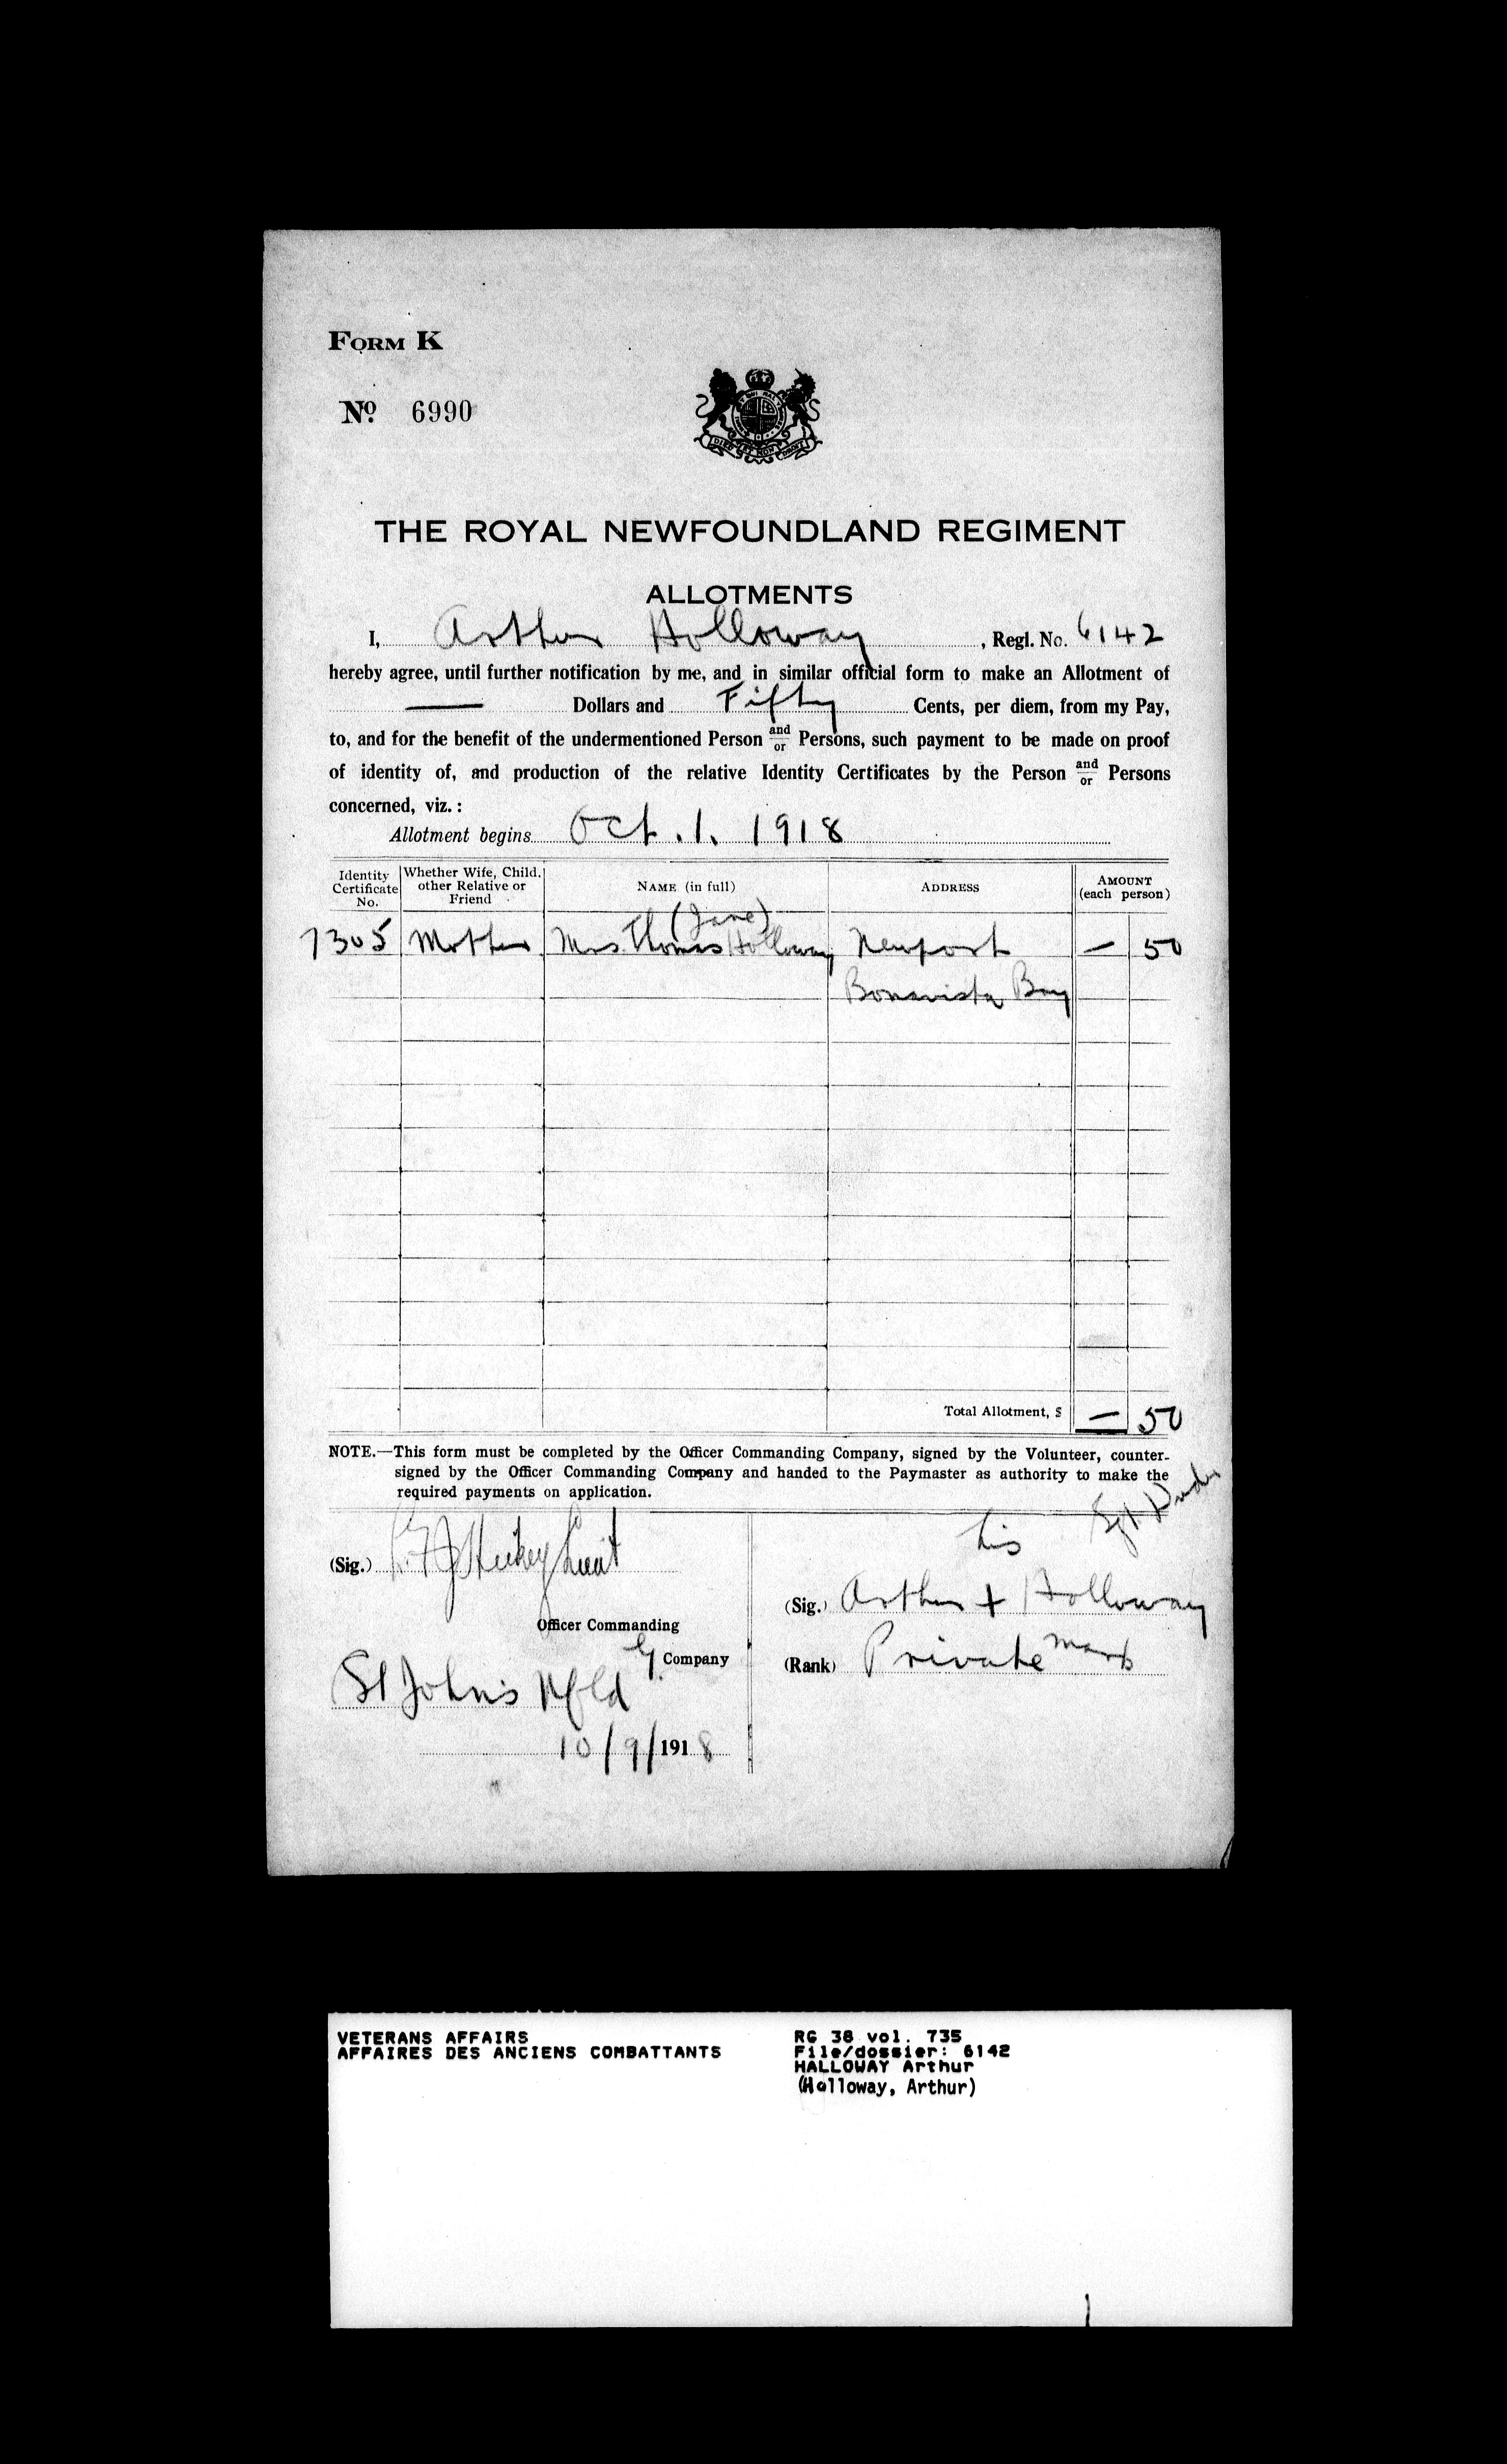 FORM K
No. 6990
DIEU ET MON DROIT
THE ROYAL NEWFOUNDLAND REGIMENT
ALLOTMENTS
I, Arthur Holloway, Regl. No. 6142
hereby agree, until further notification by me, and in similar official form to make an Allotment of
— Dollars and Fifty Cents, per diem, from my Pay,
to, and for the benefit of the undermentioned Person and/or Persons, such payment to be made on proof
of identity of, and production of the relative Identity Certificates by the Person and/or Persons
concerned, viz. :
Allotment begins Oct. 1. 1918
Identity Certificate No. Whether Wife, Child, other Relative or Friend NAME (in full) ADDRESS AMOUNT (each person)
(Jane)
7305 Mother Mrs. Thomas Holloway Newport — 50
Bonavista Bay
Total Allotment, $ — 50
NOTE.—This form must be completed by the Officer Commanding Company, signed by the Volunteer, counter-
signed by the Officer Commanding Company and handed to the Paymaster as authority to make the
required payments on application.
Sgt.
his
(Sig.) Hickey Lieut
(Sig.) Arthur + Holloway
Officer Commanding
mark
G. Company
(Rank) Private
St John's Nfld
10/9/1918
VETERANS AFFAIRS
AFFAIRES DES ANCIENS COMBATTANTS
RG 38 vol. 735
File/dossier: 6142
HALLOWAY Arthur
(Holloway, Arthur)